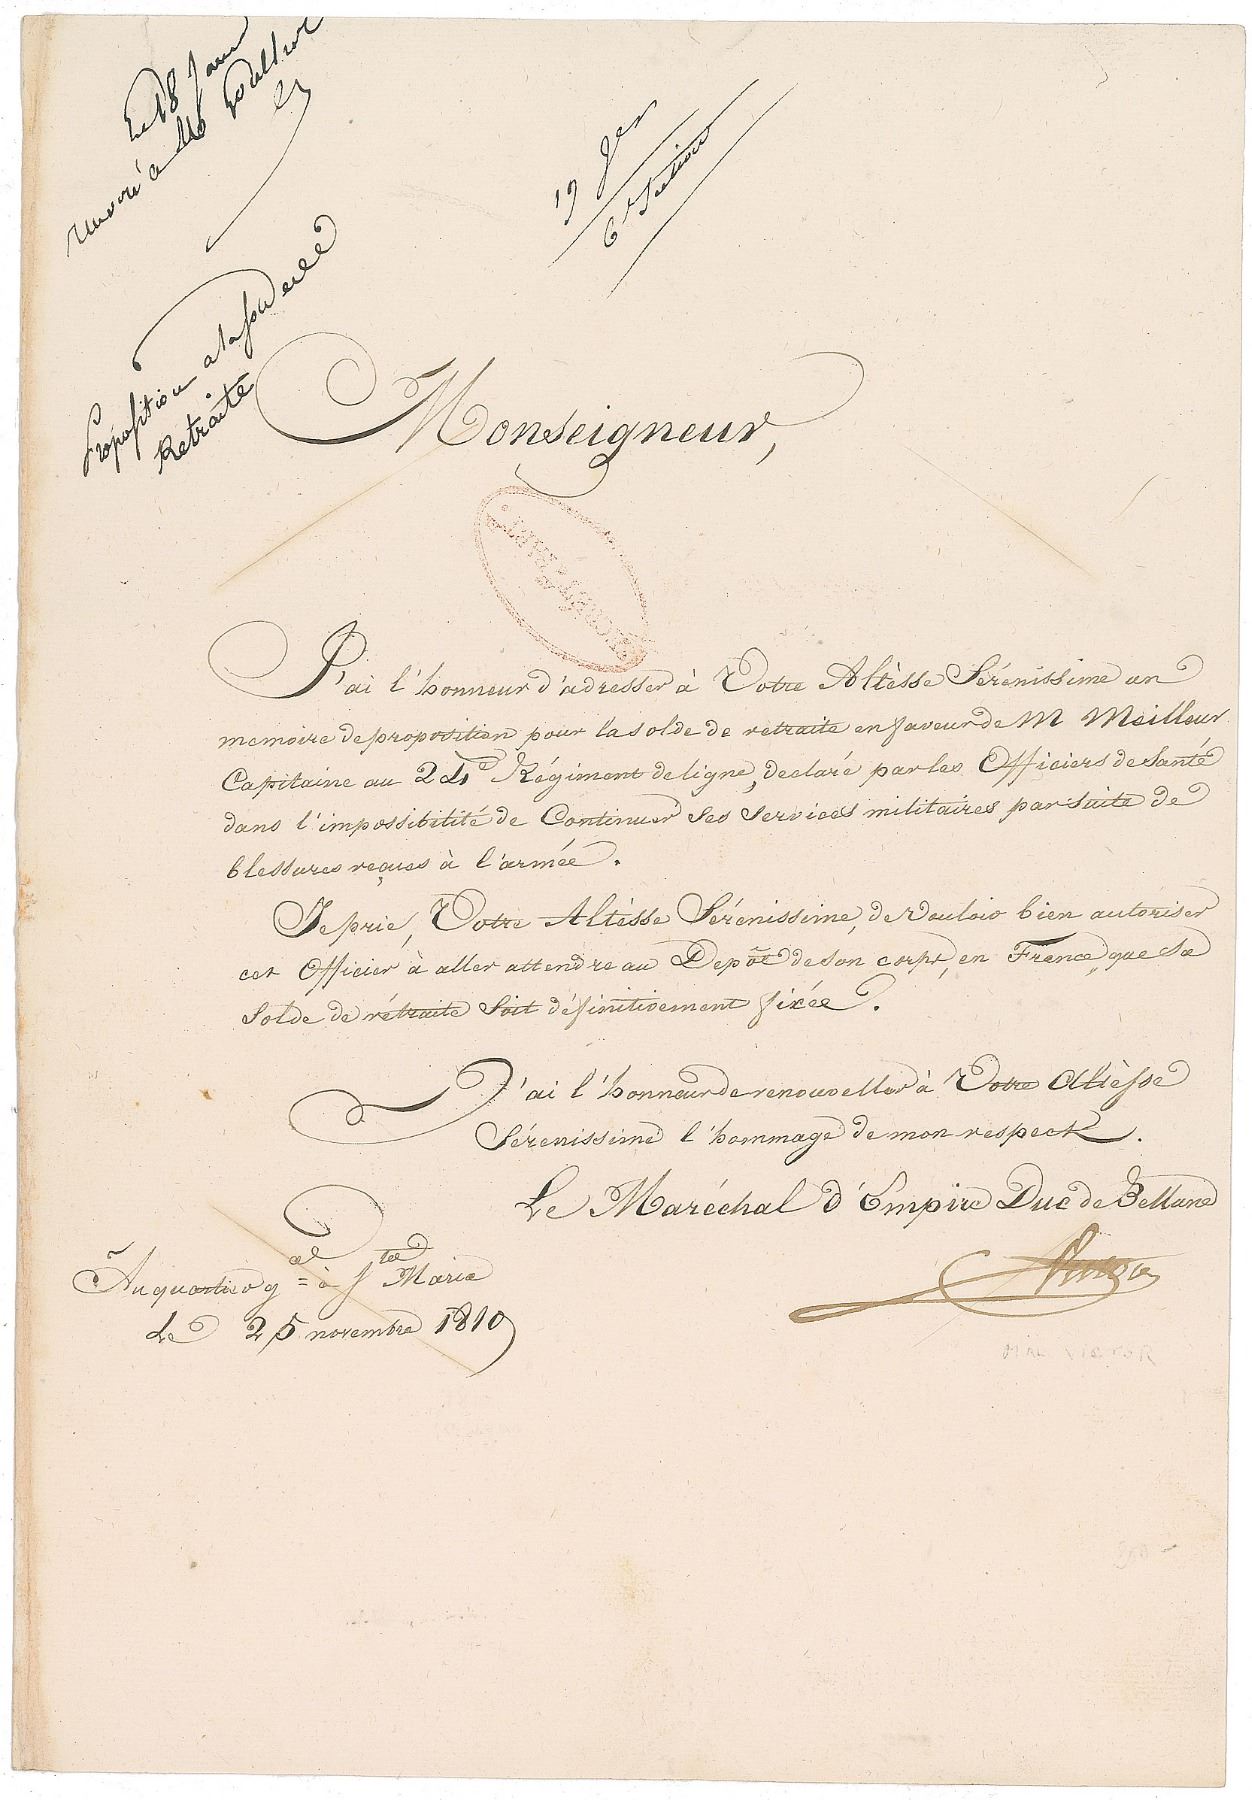 Le 18 Janv
renvoyé à M
19 Jer
6e Section
Proposition à la solde
Retraite
Monseigneur,
J'ai l'honneur d'adresser à Votre Altèsse Sérénissime un
memoire de proposition pour la solde de retraite en faveur de M Meilleur
Capitaine au 24e Régiment de ligne, declaré par les Officiers de Santé
dans l'impossibitité de Continuer Ses Services militaires par suite de
blessures reçues à l'armée.
Je prie, Votre Altèsse Sérénissime, de vouloir bien autoriser
cet Officier à aller attendre au Depôt de son corps, en France, que Sa
Solde de rétraite Soit définitivement fixée.
J'ai l'honneur de renouveller à Votre Altèsse
Sérénissime l'hommage de mon respect.
Le Maréchal d'Empire Duc de Bellune
Victor
Au quartier gal à Ste Marie
Le 25 novembre 1810
MAL VICTOR